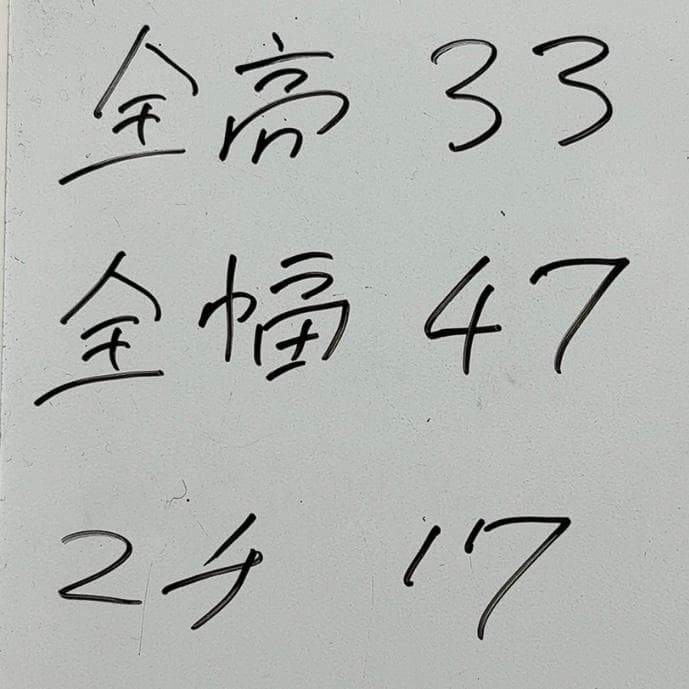 全高 33
全幅 47
2チ 17